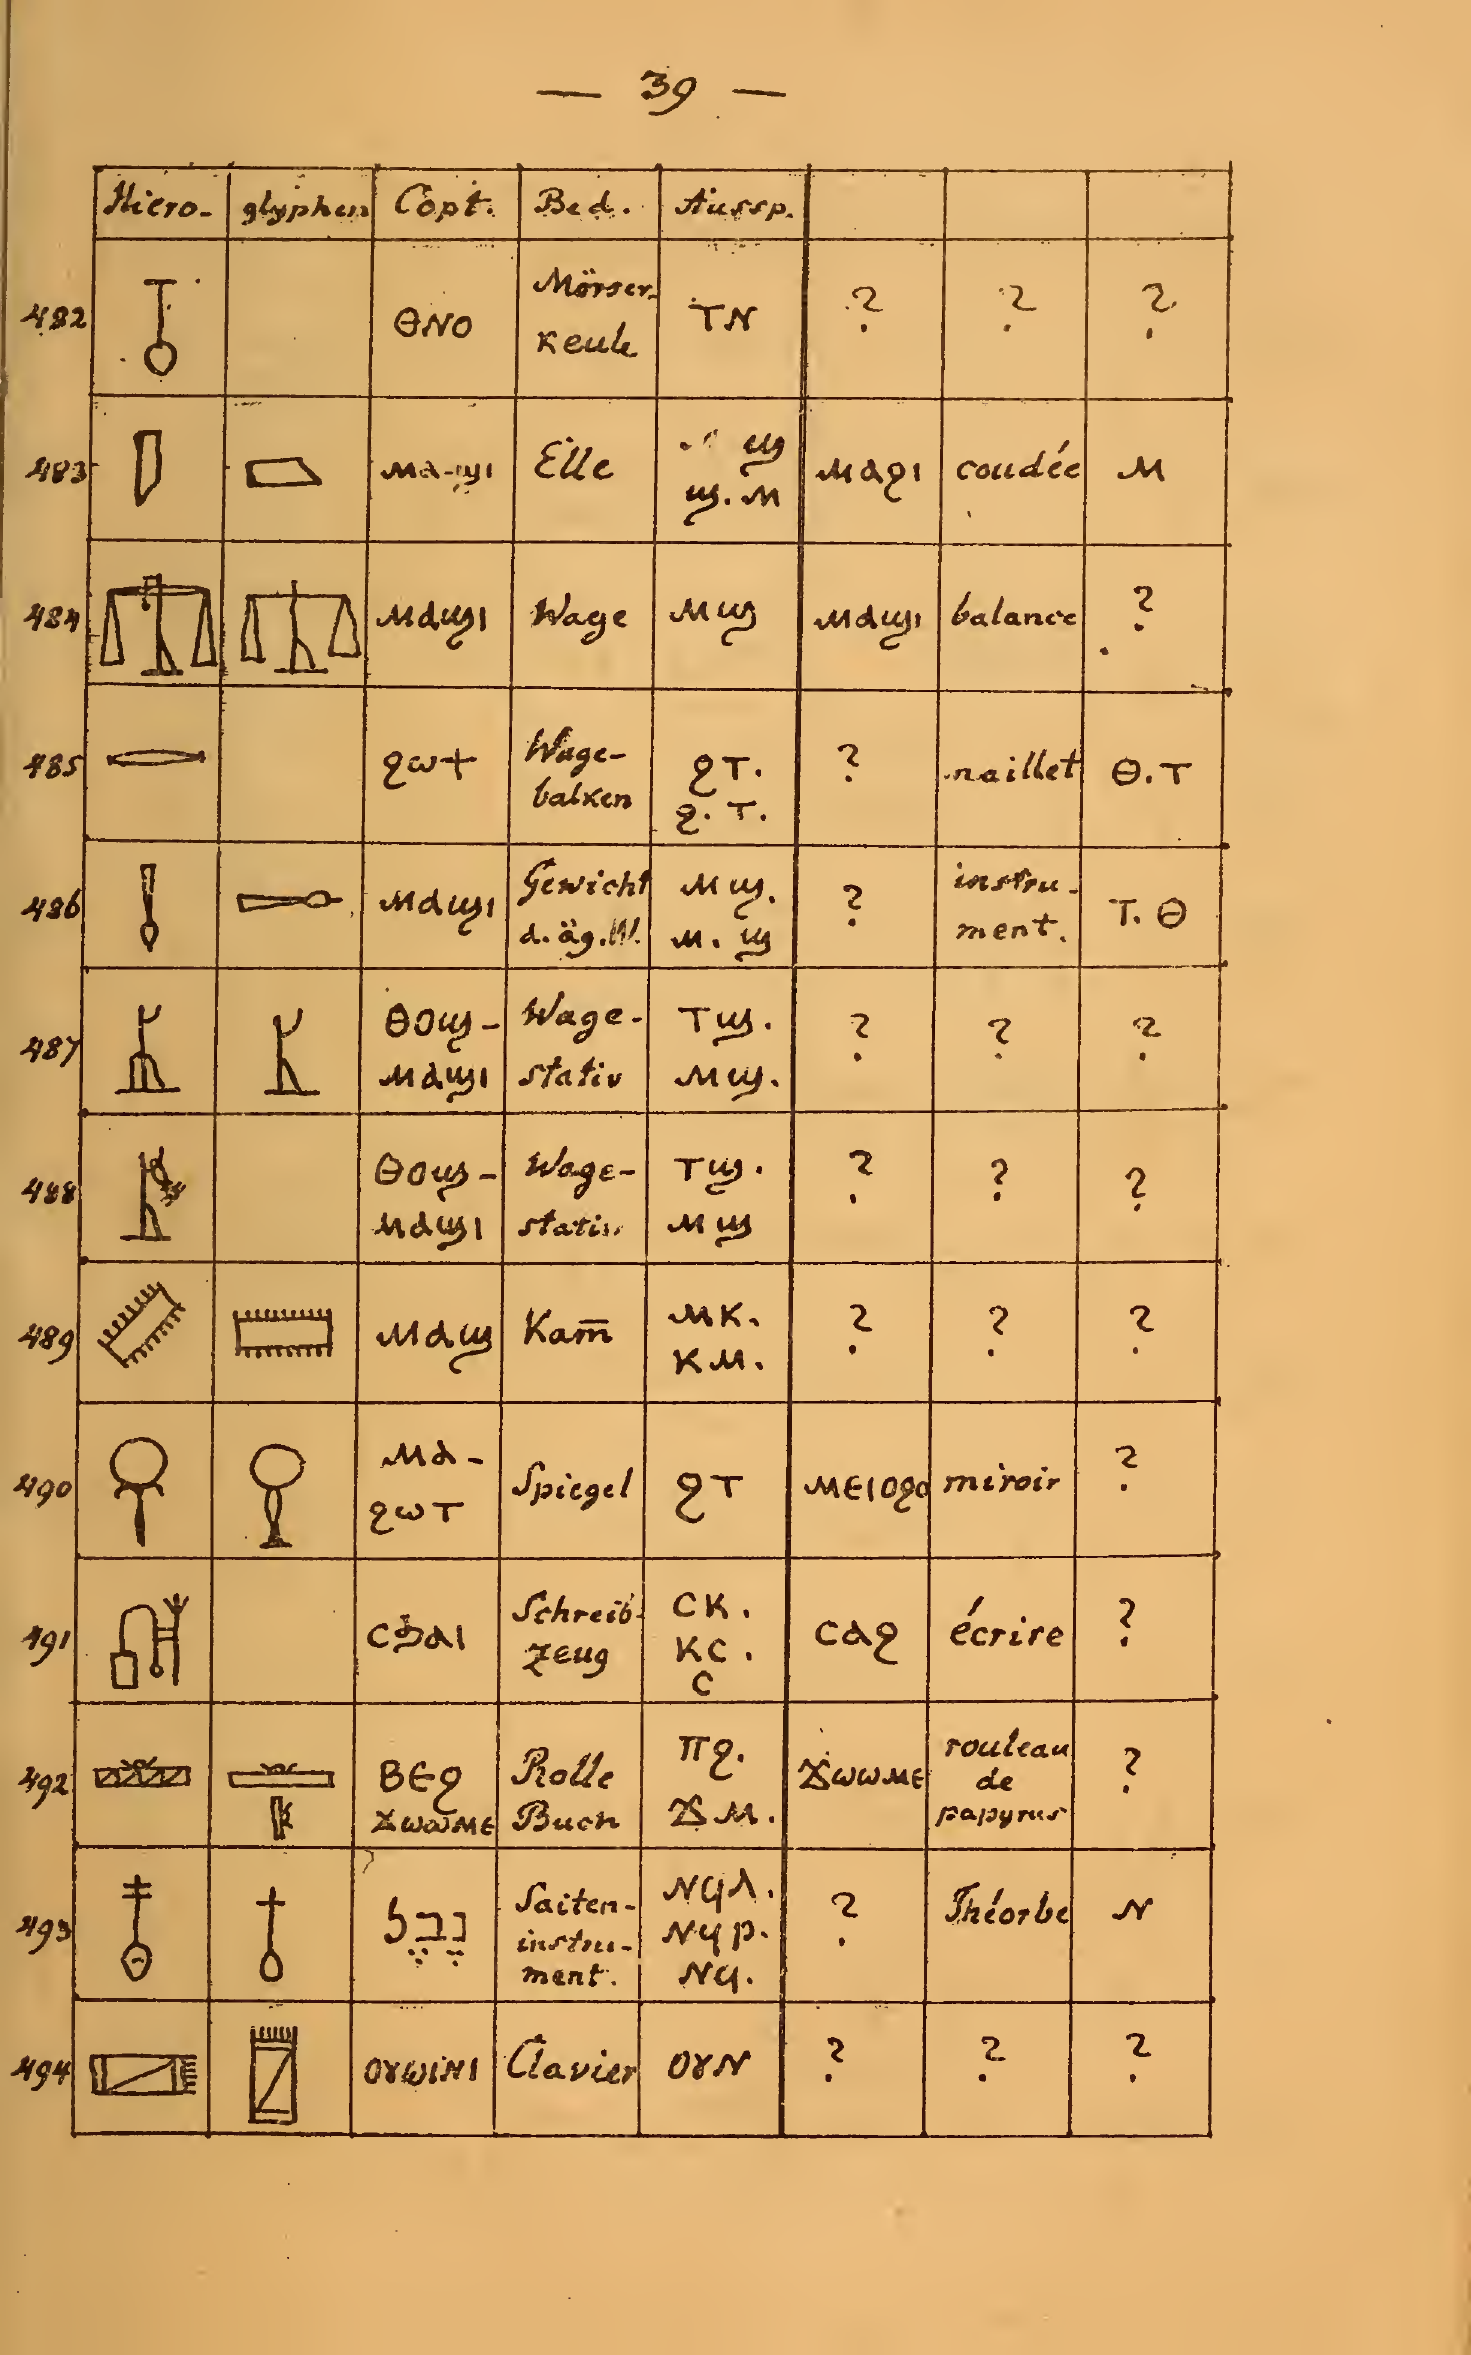 — 39 —
Hiero- glyphen Copt. Bed. Aussp.
482 ⲐⲚⲞ Mörser- keule ⲦⲚ ? ? ?
483 ⲙⲁϣⲓ Elle ϣ ϣ. ⲙ ⲙⲁϩⲓ coudée ⲙ
484 ⲙⲁϣⲓ Wage ⲙϣ ⲙⲁϣⲓ balance ?
485 ϩⲱϯ Wage- balken ϩⲧ. ϩ. ⲧ. ? Ⲑ.Ⲧ
486 ⲙⲁϣⲓ Gewicht d. äg. W. ⲙϣ. ⲙ. ϣ ? instru- ment. Ⲧ. Ⲑ
487 ⲑⲟϣ- ⲙⲁϣⲓ Wage- stativ ⲧϣ. ⲙϣ. ? ? ?
488 ⲑⲟϣ- ⲙⲁϣⲓ Wage- stativ ⲧϣ. ⲙϣ ? ? ?
489 ⲙⲁϣ Kam̅ ⲙⲕ. ⲕⲙ. ? ? ?
490 ⲙⲁ- ϩⲱⲧ Spiegel ϩⲧ ⲙⲉⲓⲟϩⲟ miroir ?
491 ⲥϧⲁⲓ Schreib- zeug ⲥⲕ. ⲕⲥ. ⲥ ⲥⲁϩ écrire ?
492 ⲃⲉϩ ϫⲱⲱⲙⲉ Rolle Buch ⲡϩ. ϫⲙ. ϫⲱⲱⲙⲉ rouleau de papyrus ?
493 נֵבֶל Saiten- instru- ment. ⲛϥⲗ. ⲛϥⲣ. ⲛϥ. ? Théorbe ⲛ
494 ⲟⲩⲱⲓⲛⲓ Clavier ⲟⲩⲛ ? ? ?